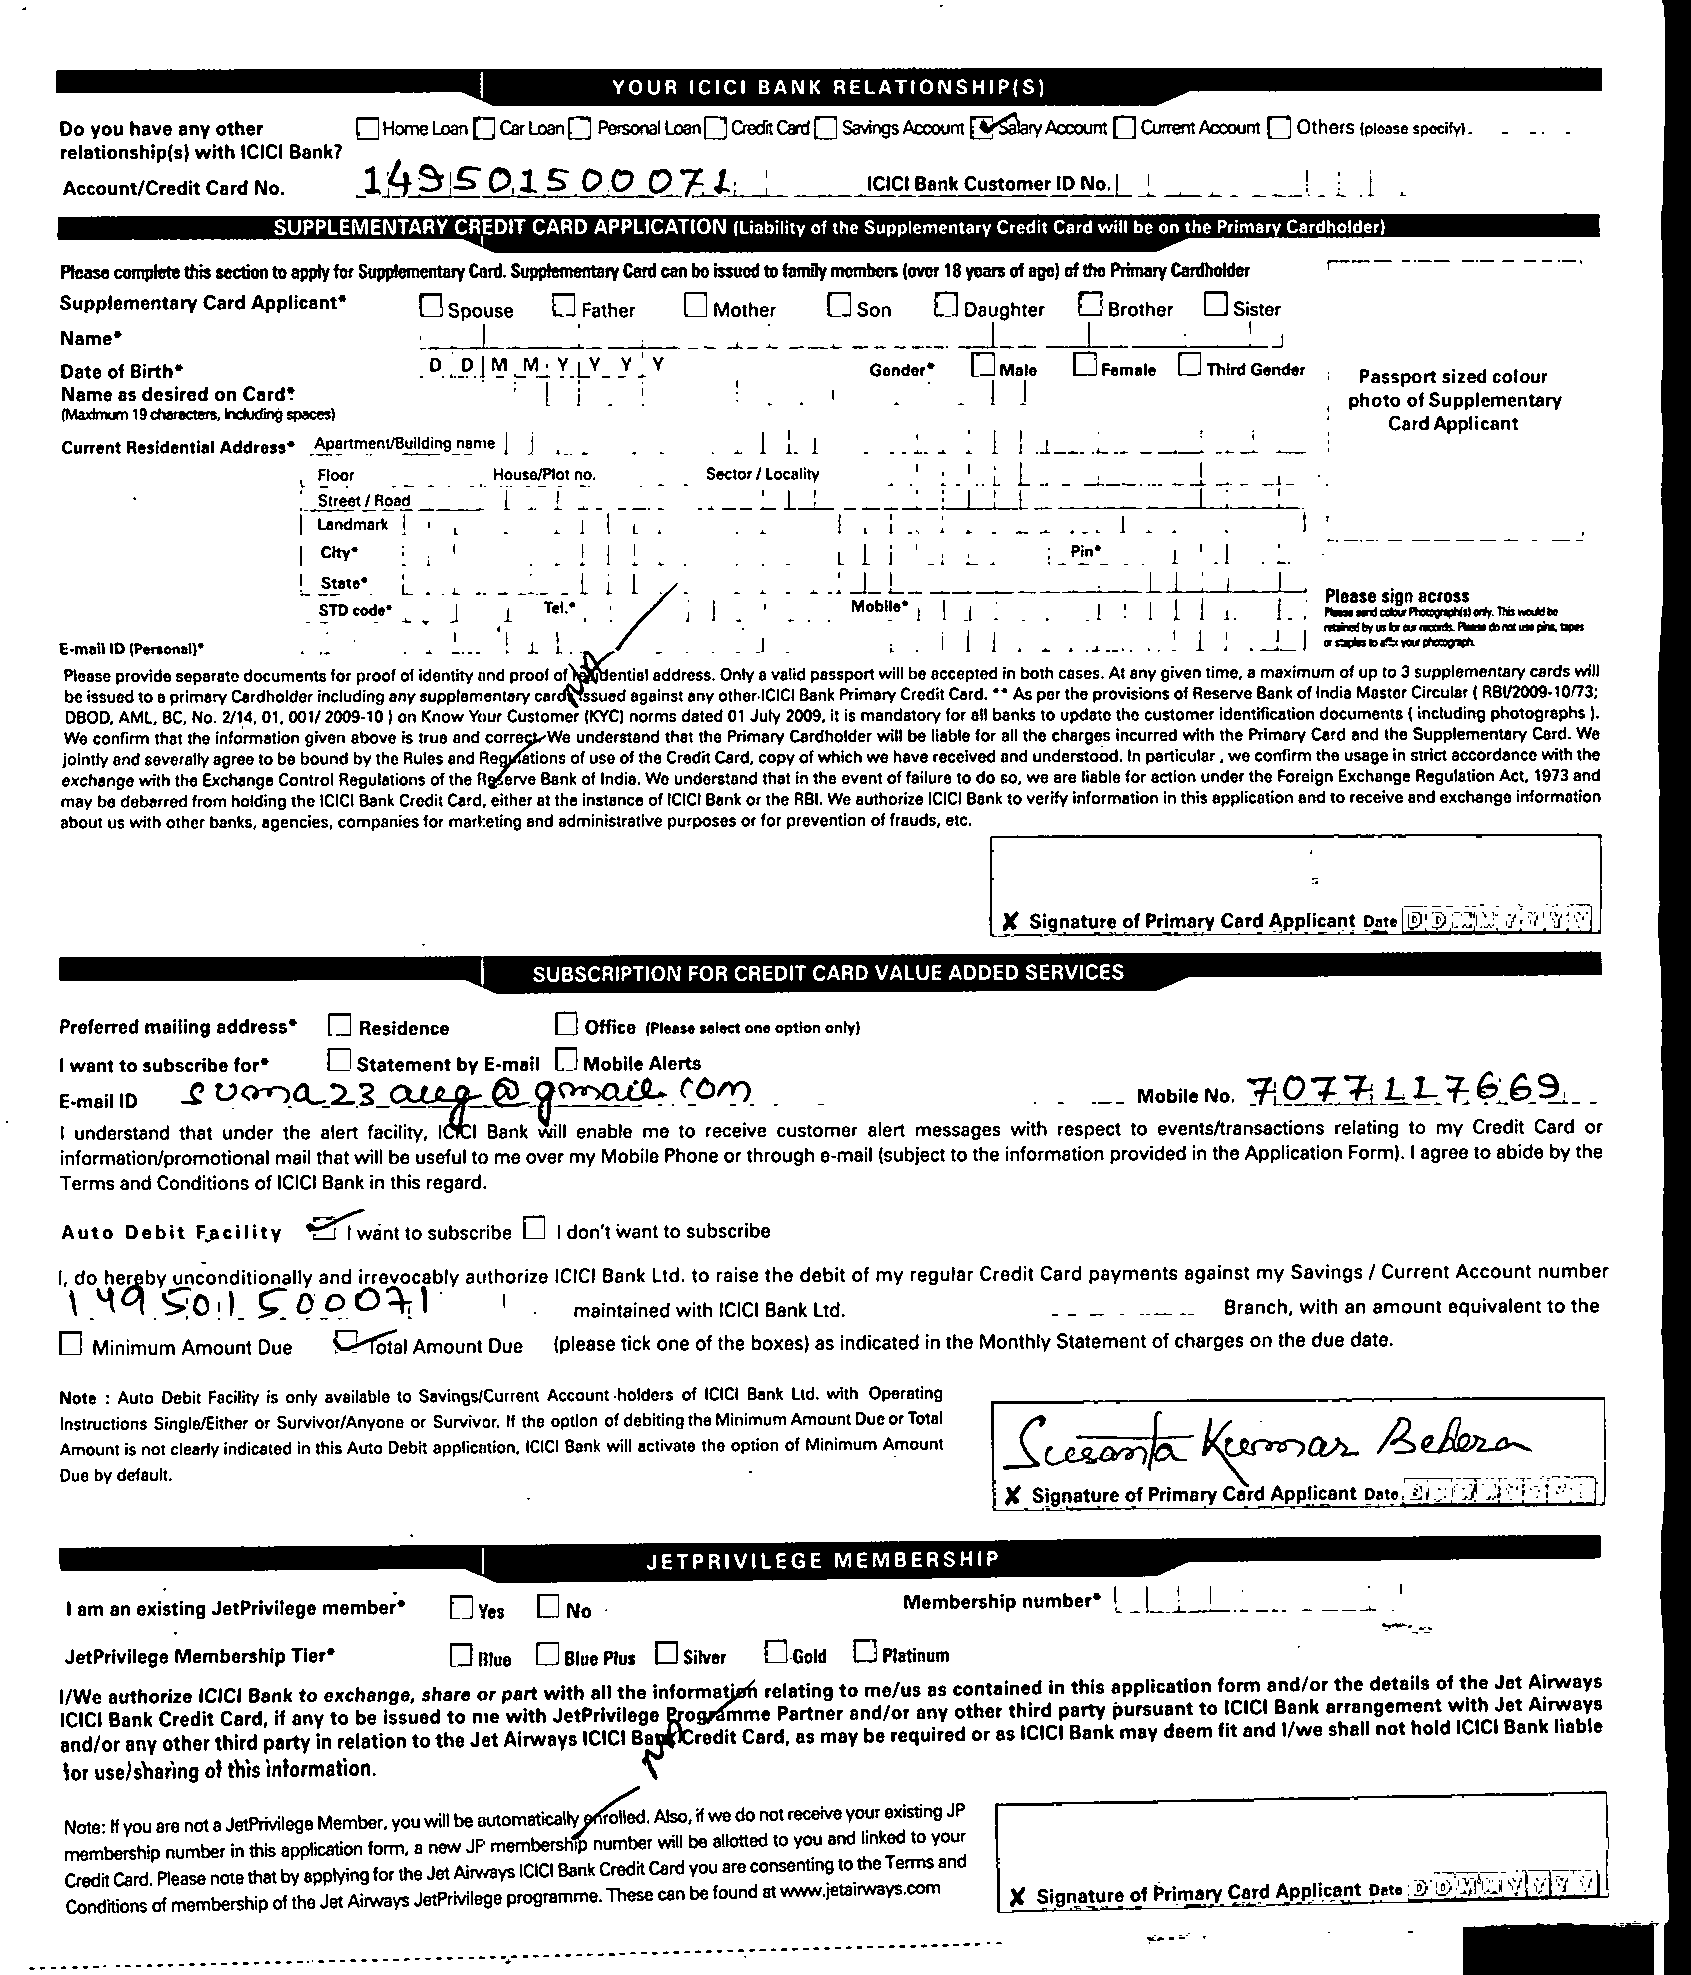 YOUR ICICI BANK RELATIONSHIP(S)
Do you have any other relationship(s) with ICICI Bank? Home Loan Car Loan Personal Loan Credit Card Savings Account Salary Account Current Account Others (please specify).
Account/Credit Card No. 149501500071 ICICI Bank Customer ID No.
SUPPLEMENTARY CREDIT CARD APPLICATION (Liability of the Supplementary Credit Card will be on the Primary Cardholder)
Please complete this section to apply for Supplementary Card. Supplementary Card can be issued to family members (over 18 years of age) of the Primary Cardholder
Supplementary Card Applicant* Spouse Father Mother Son Daughter Brother Sister
Name*
Date of Birth* D D M M Y Y Y Y Gender* Male Female Third Gender
Name as desired on Card*
(Maximum 19 characters, Including spaces)
Passport sized colour
photo of Supplementary
Card Applicant
Current Residential Address* Apartment/Building name
Floor House/Plot no. Sector / Locality
Street / Road
Landmark
City* Pin*
State*
STD code* Tel.* Mobile*
E-mail ID (Personal)*
Please sign across
Please send colour Photograph(s) only. This would be
retained by us for our records. Please do not use pins, tapes
or staples to affix your photograph.
Please provide separate documents for proof of identity and proof of residential address. Only a valid passport will be accepted in both cases. At any given time, a maximum of up to 3 supplementary cards will
be issued to a primary Cardholder including any supplementary card issued against any other ICICI Bank Primary Credit Card. ** As per the provisions of Reserve Bank of India Master Circular ( RBI/2009-10/73;
DBOD, AML, BC, No. 2/14, 01, 001/ 2009-10 ) on Know Your Customer (KYC) norms dated 01 July 2009, it is mandatory for all banks to update the customer identification documents ( including photographs ).
We confirm that the information given above is true and correct. We understand that the Primary Cardholder will be liable for all the charges incurred with the Primary Card and the Supplementary Card. We
jointly and severally agree to be bound by the Rules and Regulations of use of the Credit Card, copy of which we have received and understood. In particular , we confirm the usage in strict accordance with the
exchange with the Exchange Control Regulations of the Reserve Bank of India. We understand that in the event of failure to do so, we are liable for action under the Foreign Exchange Regulation Act, 1973 and
may be debarred from holding the ICICI Bank Credit Card, either at the instance of ICICI Bank or the RBI. We authorize ICICI Bank to verify information in this application and to receive and exchange information
about us with other banks, agencies, companies for marketing and administrative purposes or for prevention of frauds, etc.
X Signature of Primary Card Applicant Date D D M M Y Y Y Y
SUBSCRIPTION FOR CREDIT CARD VALUE ADDED SERVICES
Preferred mailing address* Residence Office (Please select one option only)
I want to subscribe for* Statement by E-mail Mobile Alerts
E-mail ID suma23aug@gmail.com Mobile No. 7077117669
I understand that under the alert facility, ICICI Bank will enable me to receive customer alert messages with respect to events/transactions relating to my Credit Card or
information/promotional mail that will be useful to me over my Mobile Phone or through e-mail (subject to the information provided in the Application Form). I agree to abide by the
Terms and Conditions of ICICI Bank in this regard.
Auto Debit Facility I want to subscribe I don't want to subscribe
I, do hereby unconditionally and irrevocably authorize ICICI Bank Ltd. to raise the debit of my regular Credit Card payments against my Savings / Current Account number
149501500071 maintained with ICICI Bank Ltd. Branch, with an amount equivalent to the
Minimum Amount Due Total Amount Due (please tick one of the boxes) as indicated in the Monthly Statement of charges on the due date.
Note : Auto Debit Facility is only available to Savings/Current Account holders of ICICI Bank Ltd. with Operating
Instructions Single/Either or Survivor/Anyone or Survivor. If the option of debiting the Minimum Amount Due or Total
Amount is not clearly indicated in this Auto Debit application, ICICI Bank will activate the option of Minimum Amount
Due by default.
Susanta Kumar Behera
X Signature of Primary Card Applicant Date
JETPRIVILEGE MEMBERSHIP
I am an existing JetPrivilege member* Yes No Membership number*
JetPrivilege Membership Tier* Blue Blue Plus Silver Gold Platinum
I/We authorize ICICI Bank to exchange, share or part with all the information relating to me/us as contained in this application form and/or the details of the Jet Airways
ICICI Bank Credit Card, if any to be issued to me with JetPrivilege Programme Partner and/or any other third party pursuant to ICICI Bank arrangement with Jet Airways
and/or any other third party in relation to the Jet Airways ICICI Bank Credit Card, as may be required or as ICICI Bank may deem fit and I/we shall not hold ICICI Bank liable
for use/sharing of this information.
Note: If you are not a JetPrivilege Member, you will be automatically enrolled. Also, if we do not receive your existing JP
membership number in this application form, a new JP membership number will be allotted to you and linked to your
Credit Card. Please note that by applying for the Jet Airways ICICI Bank Credit Card you are consenting to the Terms and
Conditions of membership of the Jet Airways JetPrivilege programme. These can be found at www.jetairways.com
X Signature of Primary Card Applicant Date D D M M Y Y Y Y